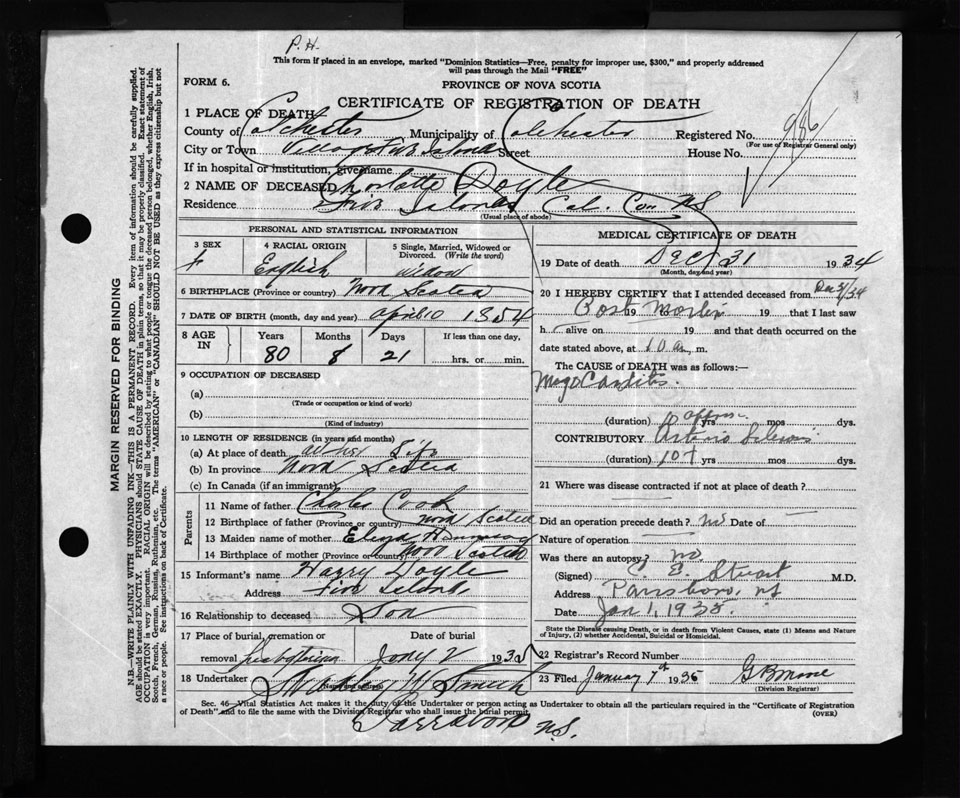 P.H.
This form if placed in an envelope, marked "Dominion Statistics—Free, penalty for improper use, $300," and properly addressed
will pass through the Mail "FREE"
FORM 6.
PROVINCE OF NOVA SCOTIA
CERTIFICATE OF REGISTRATION OF DEATH
986
1 PLACE OF DEATH
County of Colchester Municipality of Colchester Registered No.
(For use of Registrar General only)
City or Town Village Five Islands Street House No.
If in hospital or institution, give name
2 NAME OF DECEASED Charlotte Doyle
Residence Five Islands Col. Co. NS
(Usual place of abode)
PERSONAL AND STATISTICAL INFORMATION
3 SEX 4 RACIAL ORIGIN 5 Single, Married, Widowed or Divorced. (Write the word)
f English widow
6 BIRTHPLACE (Province or country) Nova Scotia
7 DATE OF BIRTH (month, day and year) April 10 1854
8 AGE IN Years Months Days If less than one day,
80 8 21 hrs. or min.
9 OCCUPATION OF DECEASED
(a)
(Trade or occupation or kind of work)
(b)
(Kind of industry)
10 LENGTH OF RESIDENCE (in years and months)
(a) At place of death Life
(b) In province Nova Scotia
(c) In Canada (if an immigrant)
Parents
11 Name of father Charles Cook
12 Birthplace of father (Province or country) Nova Scotia
13 Maiden name of mother
14 Birthplace of mother (Province or country) Nova Scotia
15 Informant's name Harry Doyle
Address Five Islands
16 Relationship to deceased Son
17 Place of burial, cremation or removal Date of burial
Presbyterian Jany 2 193
18 Undertaker Smith
Parrsboro N.S.
MEDICAL CERTIFICATE OF DEATH
19 Date of death Dec 31 1934
(Month, day and year)
20 I HEREBY CERTIFY that I attended deceased from Dec 31/34
Post Mortem 19 19 that I last saw
h alive on 19 and that death occurred on the
date stated above, at 10 am m.
The CAUSE OF DEATH was as follows:—
Myocarditis.
(duration) 10 approx yrs mos dys.
CONTRIBUTORY Arterio Sclerosis
(duration) 10+ yrs mos dys.
21 Where was disease contracted if not at place of death?
Did an operation precede death? no Date of
Nature of operation
Was there an autopsy? no.
(Signed) E. Stuart M.D.
Address Parrsboro, NS
Date Jan 1, 1935.
State the Disease causing Death, or in death from Violent Causes, state (1) Means and Nature of Injury, (2) whether Accidental, Suicidal or Homicidal.
22 Registrar's Record Number
23 Filed January 7th 1935
(Division Registrar)
Sec. 46—Vital Statistics Act makes it the duty of the Undertaker or person acting as Undertaker to obtain all the particulars required in the "Certificate of Registration
of Death" and to file the same with the Division Registrar who shall issue the burial permit.
(OVER)
MARGIN RESERVED FOR BINDING
N.B.—WRITE PLAINLY WITH UNFADING INK—THIS IS A PERMANENT RECORD. Every item of information should be carefully supplied.
AGE should be stated EXACTLY. PHYSICIANS should STATE CAUSE OF DEATH in plain terms, so that it may be properly classified. Exact statement of
OCCUPATION is very important. RACIAL ORIGIN will be described by stating to what people or tongue the deceased person belonged, whether English, Irish,
Scotch, French, German, Russian, Ruthenian, etc. The terms "AMERICAN" or "CANADIAN" SHOULD NOT BE USED as they express citizenship but not
a race or people. See instructions on back of Certificate.